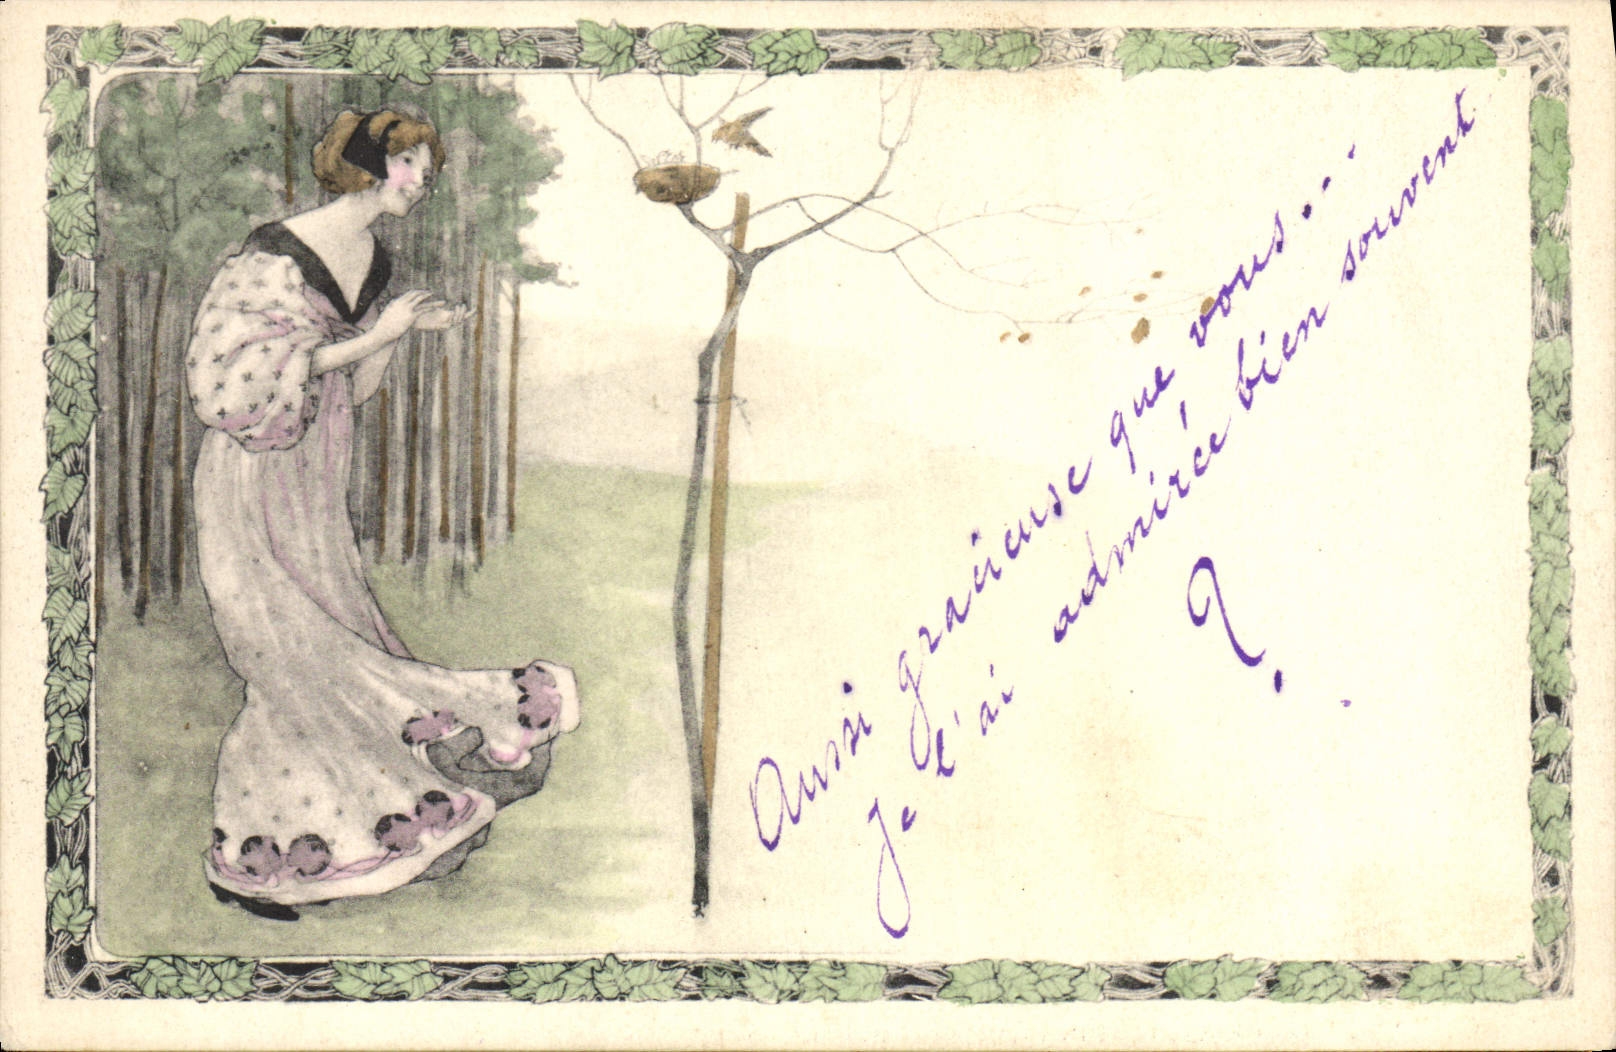 Aussi gracieuse que vous...
Je l'ai admirée bien souvent